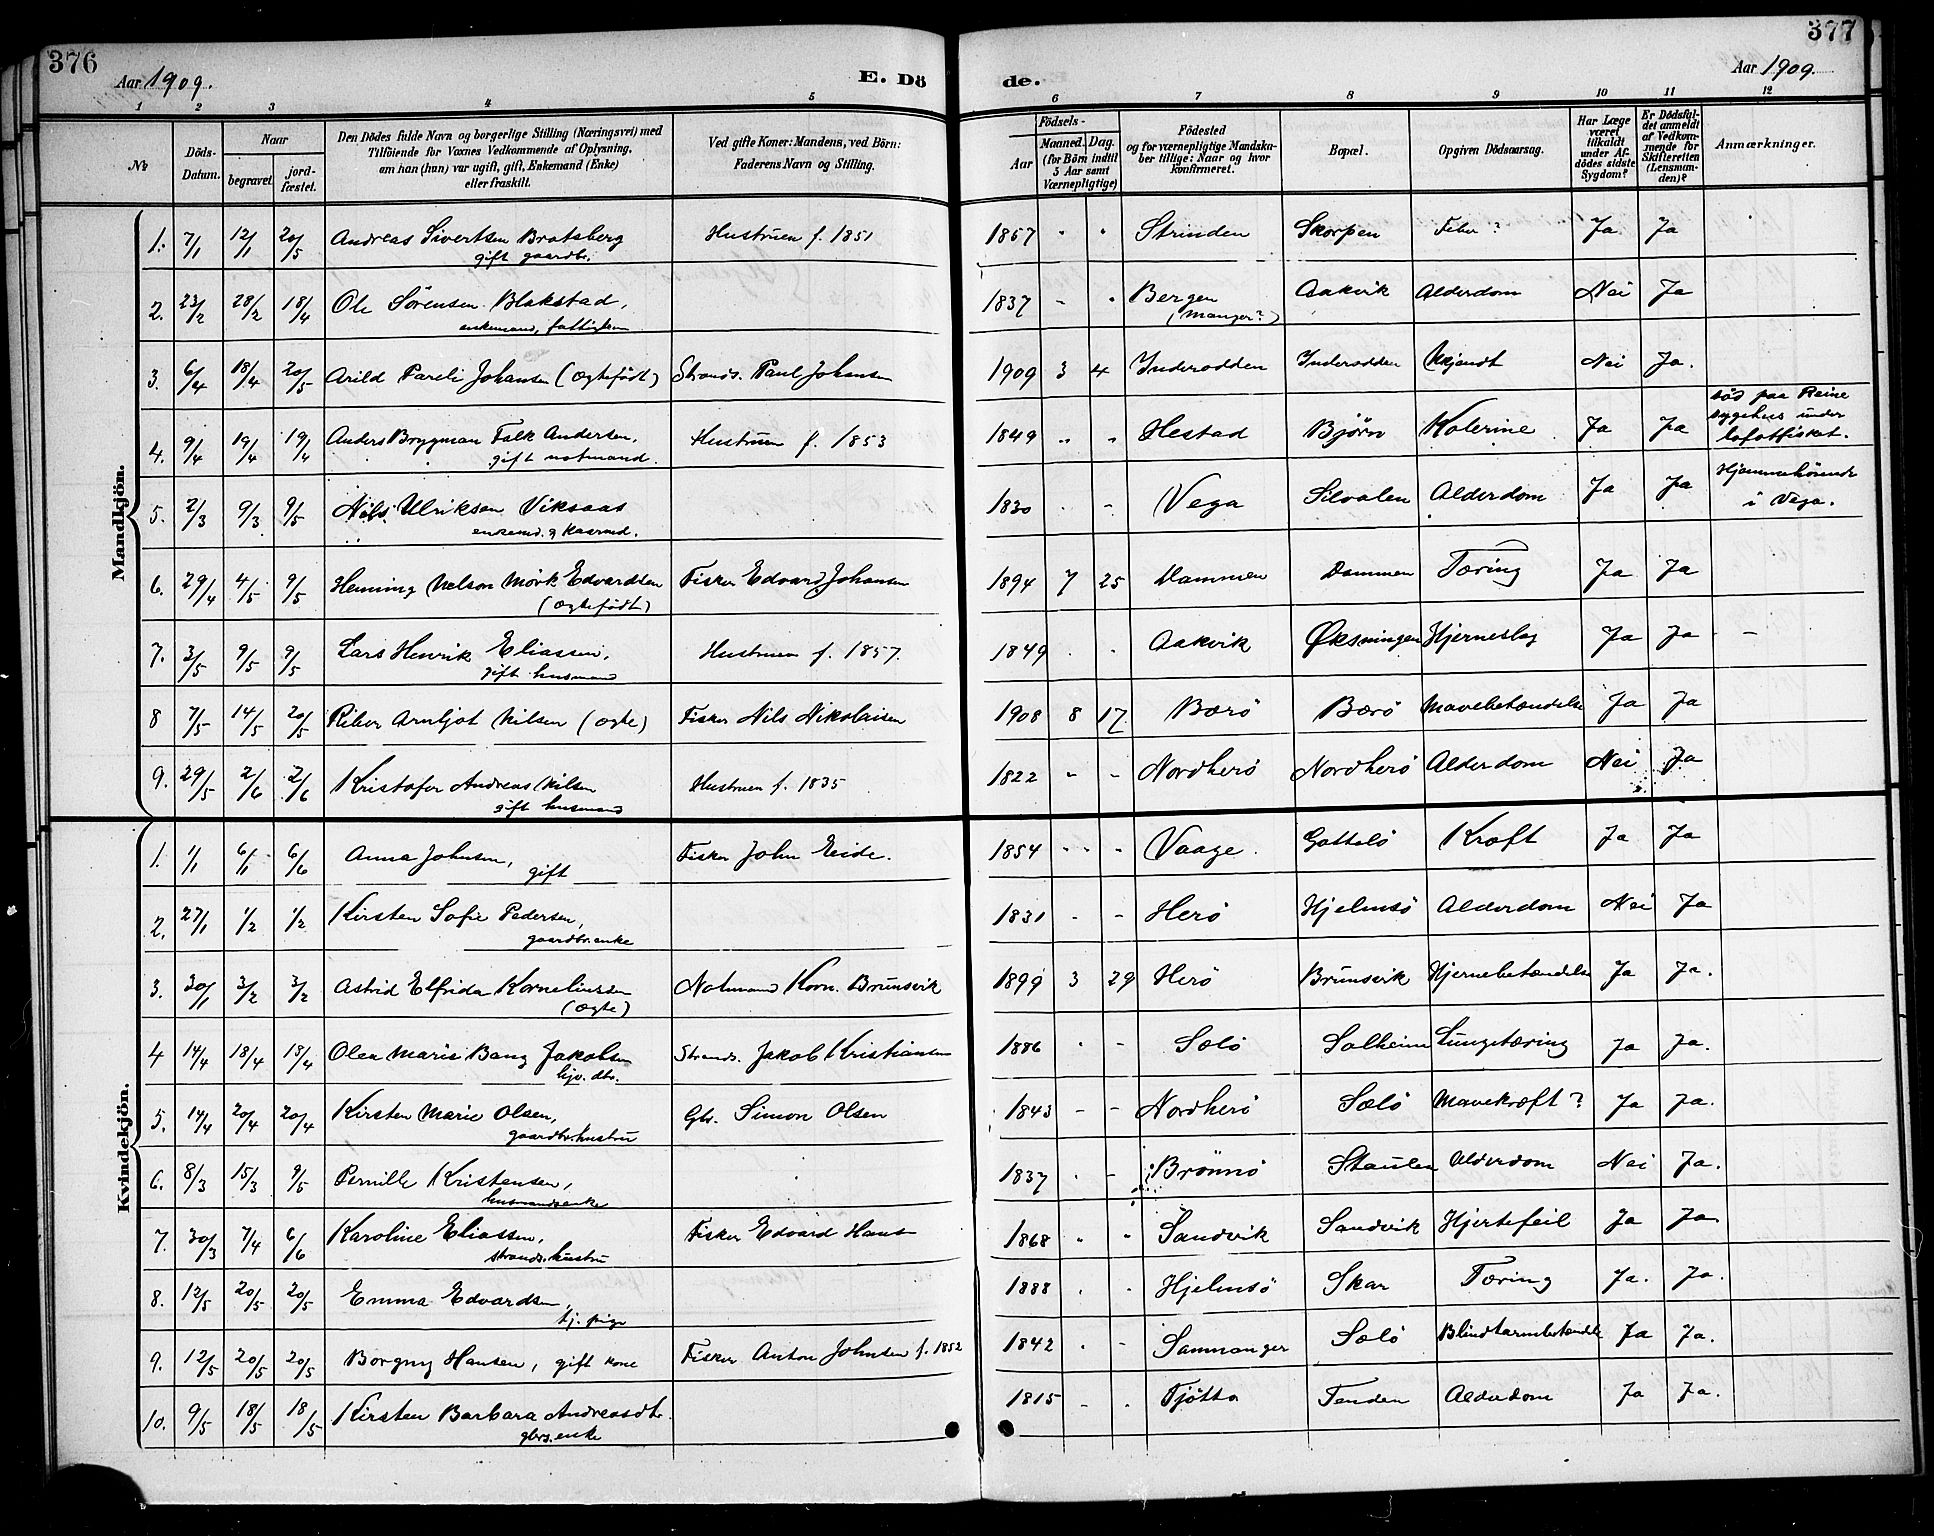 376
377
Aar 1909.
E. Dö
de.
Aar 1909.
1 2 3 4 5 6 7 8 9 10 11 12
No
Döds-Datum.
Naar
begravet.
jord-fæstet.
Den Dödes fulde Navn og borgerlige Stilling (Næringsvei) med
Tilföiende for Voxnes Vedkommende af Oplysning,
om han (hun) var ugift, gift, Enkemand (Enke)
eller fraskilt.
Ved gifte Koner: Mandens, ved Börn:
Faderens Navn og Stilling.
Födsels-
Aar
Maaned. Dag.
(for Börn indtil
5 Aar samt
Værnepligtige)
Födested
og for værnepligtige Mandska-
ber tillige: Naar og hvor
konfirmeret.
Bopæl.
Opgiven Dödsaarsag.
Har Læge
været
tilkaldt
under Af-
dödes sidste
Sygdom?
Er Dödsfal-
det anmeldt
af Vedkom-
mende for
Skifteretten
(Lensman-
den)?
Anmærkninger.
Mandkjön.
1. 7/1 12/1 20/5 Andreas Sivertsen Bratsberg Hustruen f. 1851 1857 " " Strinden Skorpen Feber ? Ja Ja
gift gaardbr.
2. 23/2 28/2 18/4 Ole Sörensen Blakstad, 1837 - " Bergen Aakvik Alderdom Nei Ja
enkemand, fattiglem (Manger?)
3. 6/4 18/4 20/5 Arild Pareli Johansen (ægtefödt) Strands. Paul Johansen 1909 3 4 Inderodden Inderodden Ukjendt Nei Ja.
4. 9/4 19/4 19/4 Anders Brygman Falk Andersen, Hustruen f. 1853 1849 " " Hestad Bjørn Kolerine Ja Ja död paa Reine
sygehus under
lofotfisket.
gift notmand.
5. 2/3 9/3 9/5 Nils Ulriksen Viksaas 1830 . - Vega Silvalen Alderdom Ja Ja Hjemmehörende
i Vega.
enkemd. &
6. 29/4 4/5 9/5 Henning Nelson Mörk Edvardsen Fisker Edvard Johansen 1894 7 25 Dammen Dammen Tæring Ja Ja
(ægtefödt)
7. 3/5 9/5 9/5 Lars Henrik Eliassen, Hustruen f. 1857. 1849 . . Aakvik Øksningen Hjerneslag Ja Ja -
gift husmand
8 7/5 14/5 20/5 Arnljot Nilsen (ægte) Fisker Nils Nikolaisen 1908 8 17 Bærö Bærö Mavebetændelse Ja Ja
9. 29/5 2/6 2/6 Kristofer Andreas Nilsen Hustruen f. 1835 1822 " - Nordherö Nordherö Alderdom Nei Ja
gift husmand
Kvindekjön.
1. 1/1 6/1 6/6 Anna Johnsen, Fisker John Eide. 1854 " " - Vaage. Gottelö Kræft Ja Ja
gift
2. 27/1 1/2 1/2 Kirsten Sofie Pedersen, 1831 - - Herö Hjelmsö Alderdom Nei Ja
gaardbr.enke
3. 30/1 3/2 3/2 Astrid Elfrida Korneliussen Notmand Korn. Brunsvik 1899 3 29 Herö Brunsvik Hjernebetændelse Ja Ja.
(ægte)
4 14/4 18/4 18/4 Olea Marie Bang Jakobsen Strands. Jakob Kristiansen 1886 . - Sælö Solheim Lungetæring Ja Ja.
hjv. dtr.
5. 14/4 20/4 20/4 Kirsten Marie Olsen, Gbr. Simon Olsen 1843 - - Nordherö Sælö Mavekræft? Ja Ja.
gaardbr.hustru
6. 8/3 15/3 9/5 Pernille Kristensen, 1837 . - Brönnö Staulen Alderdom Nei Ja.
husmandsenke
7. 30/3 7/4 6/6 Karoline Eliassen, Fisker Edvard Hansen 1868 " " Sandvik Sandvik Hjertefeil Ja Ja
strands.hustru
8. 12/5 20/5 20/5 Emma Edvardsen, 1888 . . Hjelmsö Skar Tæring Ja. Ja.
tj. pige
9. 12/5 20/5 20/5 Borgny Hansen, gift kone Fisker Anton Johnsen f. 1852 1842 . - Sammanger Sælö Blindtarmbetændelse Ja Ja.
10. 9/5 18/5 18/5 Kirsten Barbara Andreasdtr. 1815 - . Tjötta Tenden Alderdom Ja Ja.
gbrs.enke